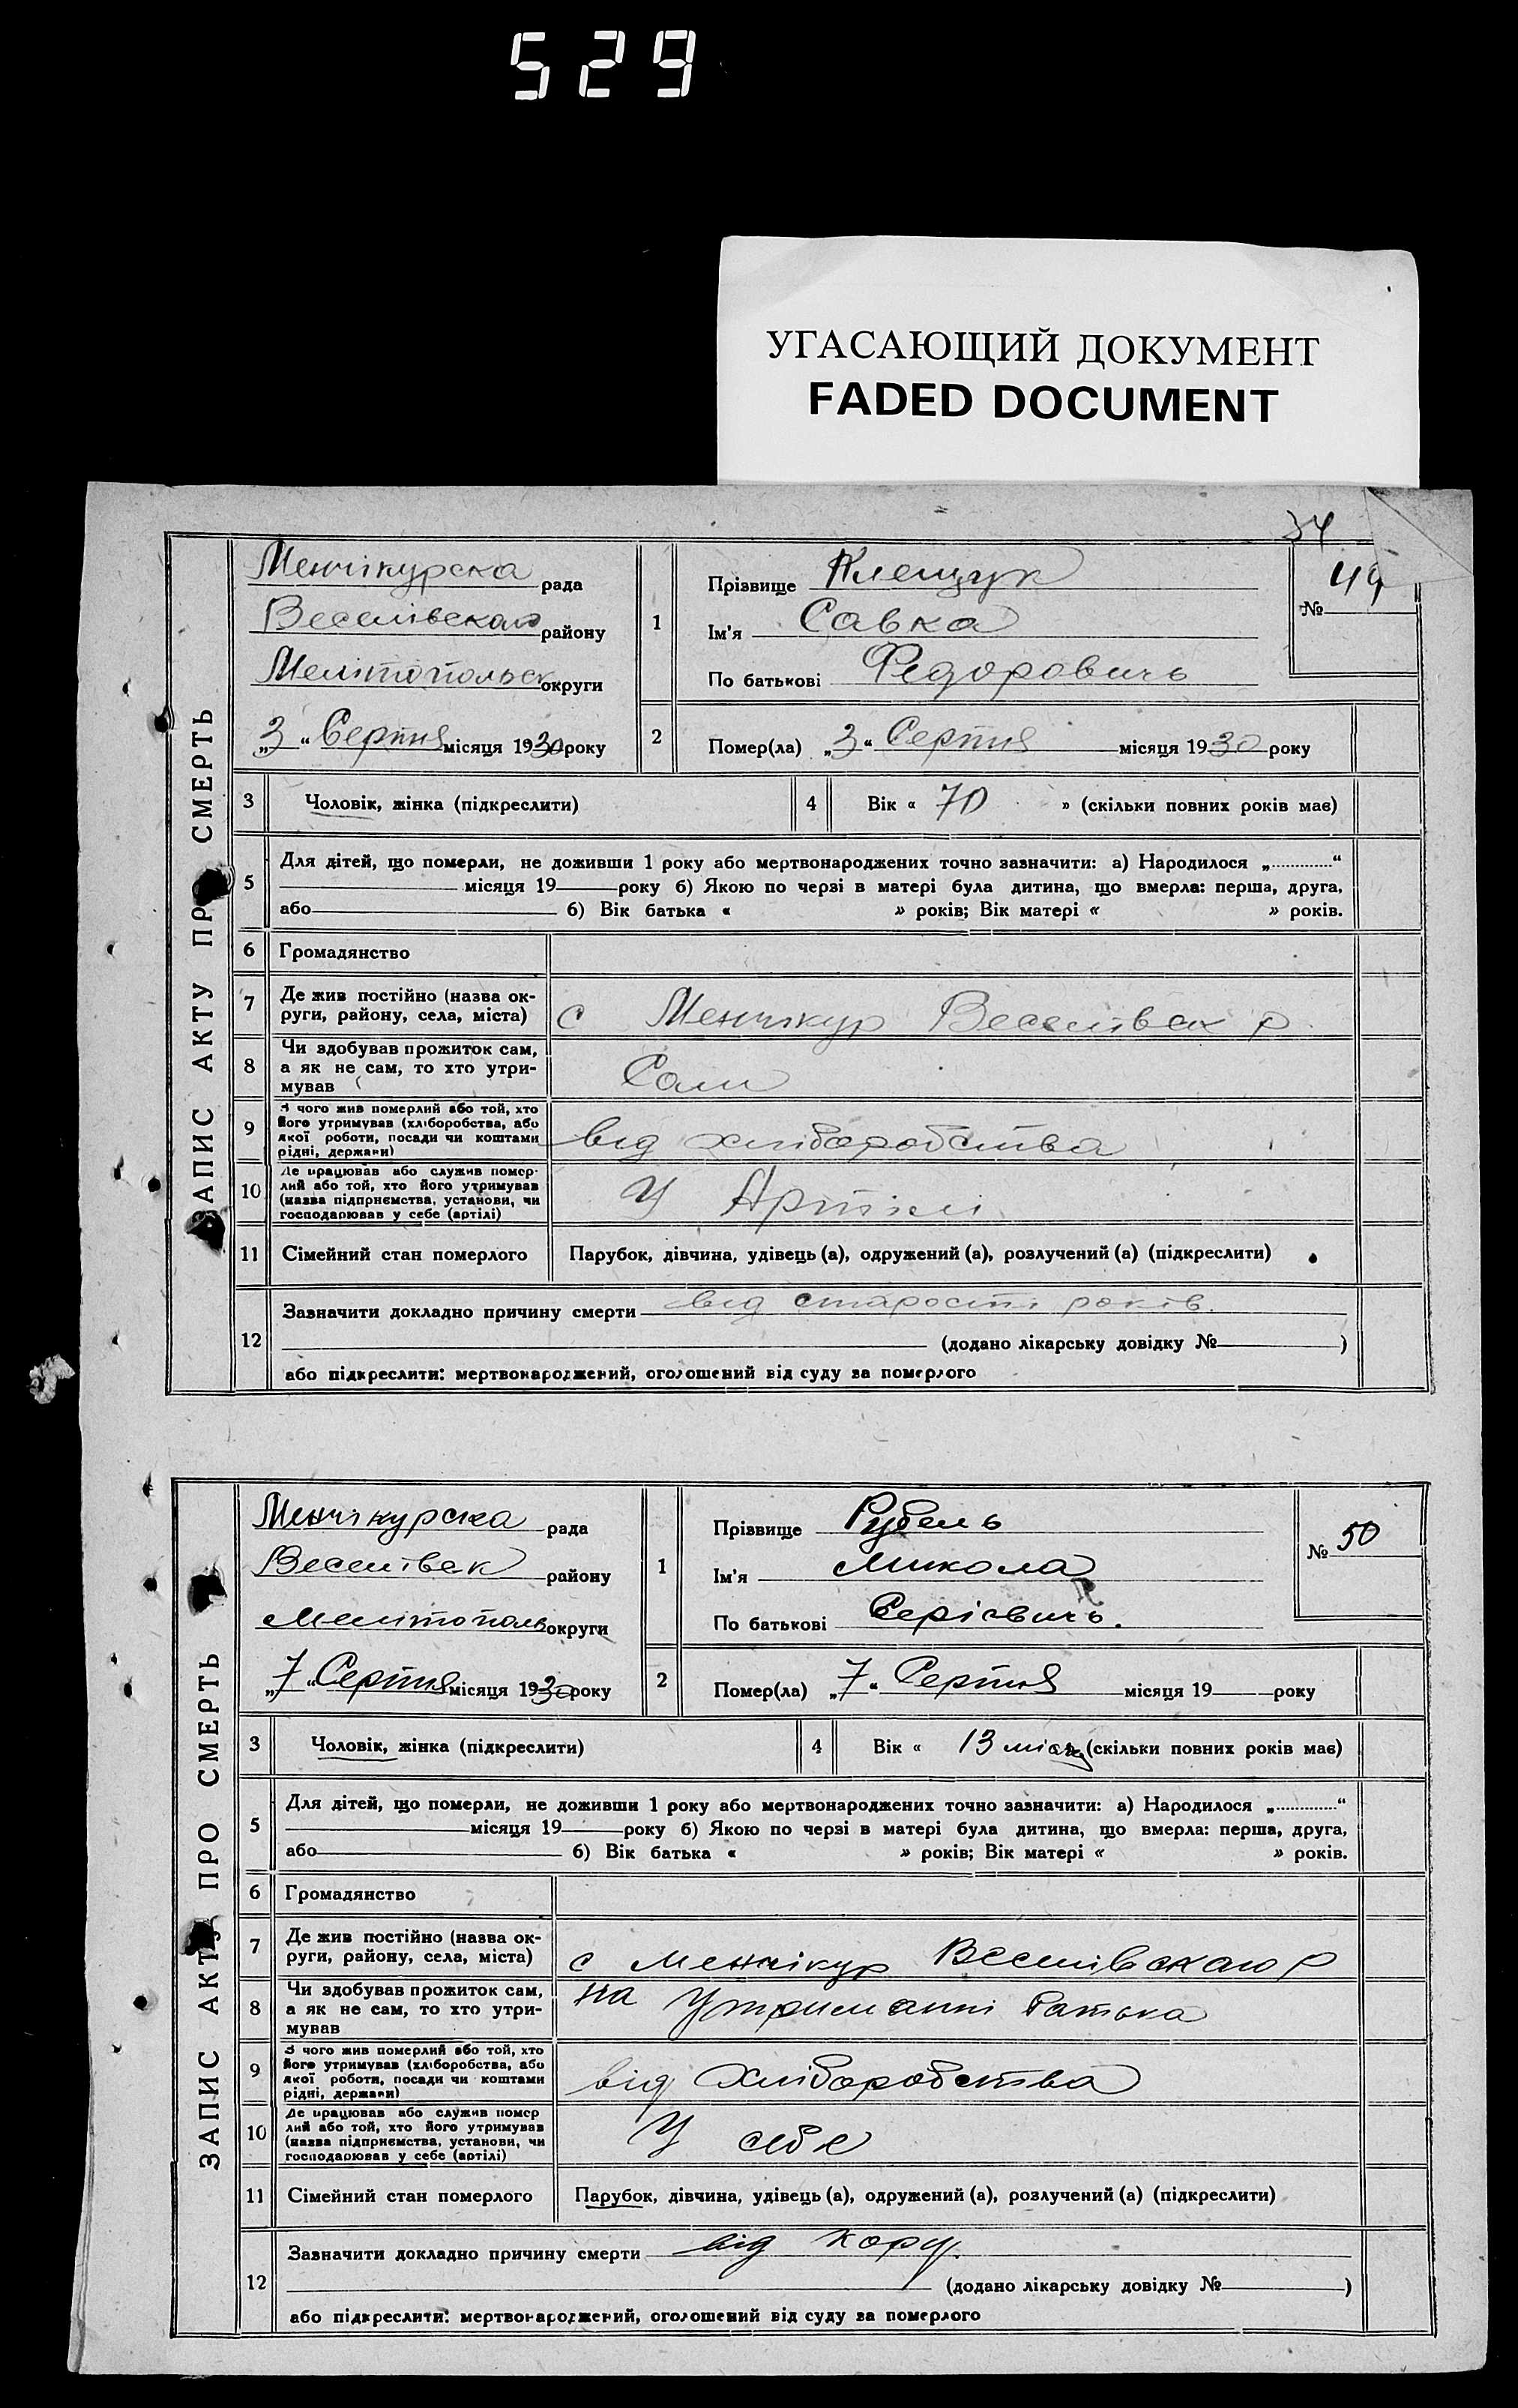 529
УГАСАЮЩИЙ ДОКУМЕНТ
FADED DOCUMENT
34
ЗАПИС АКТУ ПРО СМЕРТЬ
Менчікурска рада
Веселівскаго району
Мелітопольск округи
„3“ Серпня місяця 1930 року
1
Прізвище Клещук
Ім'я Савка
По батькові Федоровичь
№ 49
2
Помер(ла) „3“ Серпня місяця 1930 року
3 Чоловік, жінка (підкреслити)
4 Вік « 70 » (скільки повних років має)
5 Для дітей, що померли, не доживши 1 року або мертвонароджених точно зазначити: а) Народилося „............“
місяця 19 року б) Якою по черзі в матері була дитина, що вмерла: перша, друга,
або б) Вік батька « » років; Вік матері « » років.
6 Громадянство
7 Де жив постійно (назва ок-
руги, району, села, міста)
с Менчікур Веселівск р
8 Чи здобував прожиток сам,
а як не сам, то хто утри-
мував
Сам
9 З чого жив померлий або той, хто
його утримував (хліборобства, або
якої роботи, посади чи коштами
рідні, держави)
від хліборобства
10 Де працював або служив помер-
лий або той, хто його утримував
(назва підприємства, установи, чи
господарював у себе (артілі)
У Артілі
11 Сімейний стан померлого Парубок, дівчина, удівець (а), одружений (а), розлучений (а) (підкреслити)
12 Зазначити докладно причину смерти від старости років.
(додано лікарську довідку № )
або підкреслити: мертвонароджений, оголошений від суду за померлого
ЗАПИС АКТУ ПРО СМЕРТЬ
Менчікурска рада
Веселівск району
Мелітополь округи
„7“ Серпня місяця 1930 року
1
Прізвище Рубель
Ім'я Микола
По батькові
№ 50
2
Помер(ла) „7“ Серпня місяця 19 року
3 Чоловік, жінка (підкреслити)
4 Вік « 13 місяц (скільки повних років має)
5 Для дітей, що померли, не доживши 1 року або мертвонароджених точно зазначити: а) Народилося „............“
місяця 19 року б) Якою по черзі в матері була дитина, що вмерла: перша, друга,
або б) Вік батька « » років; Вік матері « » років.
6 Громадянство
7 Де жив постійно (назва ок-
руги, району, села, міста)
с Менчікур Веселівскаго р
8 Чи здобував прожиток сам,
а як не сам, то хто утри-
мував
на Утриманні батька
9 З чого жив померлий або той, хто
його утримував (хліборобства, або
якої роботи, посади чи коштами
рідні, держави)
від хліборобства
10 Де працював або служив помер
лий або той, хто його утримував
(назва підприємства, установи, чи
господарював у себе (артілі)
У себе
11 Сімейний стан померлого Парубок, дівчина, удівець (а), одружений (а), розлучений (а) (підкреслити)
12 Зазначити докладно причину смерти від кору.
(додано лікарську довідку № )
або підкреслити: мертвонароджений, оголошений від суду за померлого